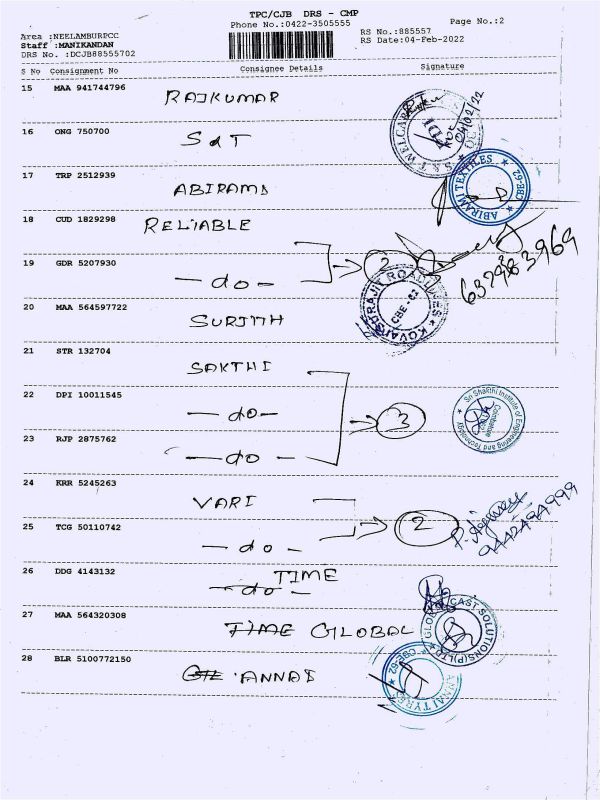 TPC/CJB DRS - CMP
Phone No.:0422-3505555
Page No.:2
Area :NEELAMBURPCC
Staff :MANIKANDAN
DRS No. :DCJB88555702
RS No.:885557
RS Date:04-Feb-2022
S No Consignment No Consignee Details Signature
15 MAA 941744796 RAJKUMAR
04/02/22
16 ONG 750700 S&T
S & T WELCARE
17 TRP 2512939 ABIRAMI
ABIRAMI TEXTILES CBE-62
18 CUD 1829298 RELIABLE
2
19 GDR 5207930 -do-
KOVAI SURAJIT ROADLINES CBE-62
20 MAA 564597722 SURJITH
21 STR 132704 SAKTHI
22 DPI 10011545 -do-
3
Sri Shakthi Institute of Engineering and Technology Coimbatore
23 RJP 2875762 -do-
24 KRR 5245263 VARI
2
9442494999
25 TCG 50110742 -do-
26 DDG 4143132 -do- TIME
27 MAA 564320308 TIME GLOBAL
CAST SOLUTIONS (P) LTD
28 BLR 5100772150 ANNAI
ANNAI TYRES CBE-62